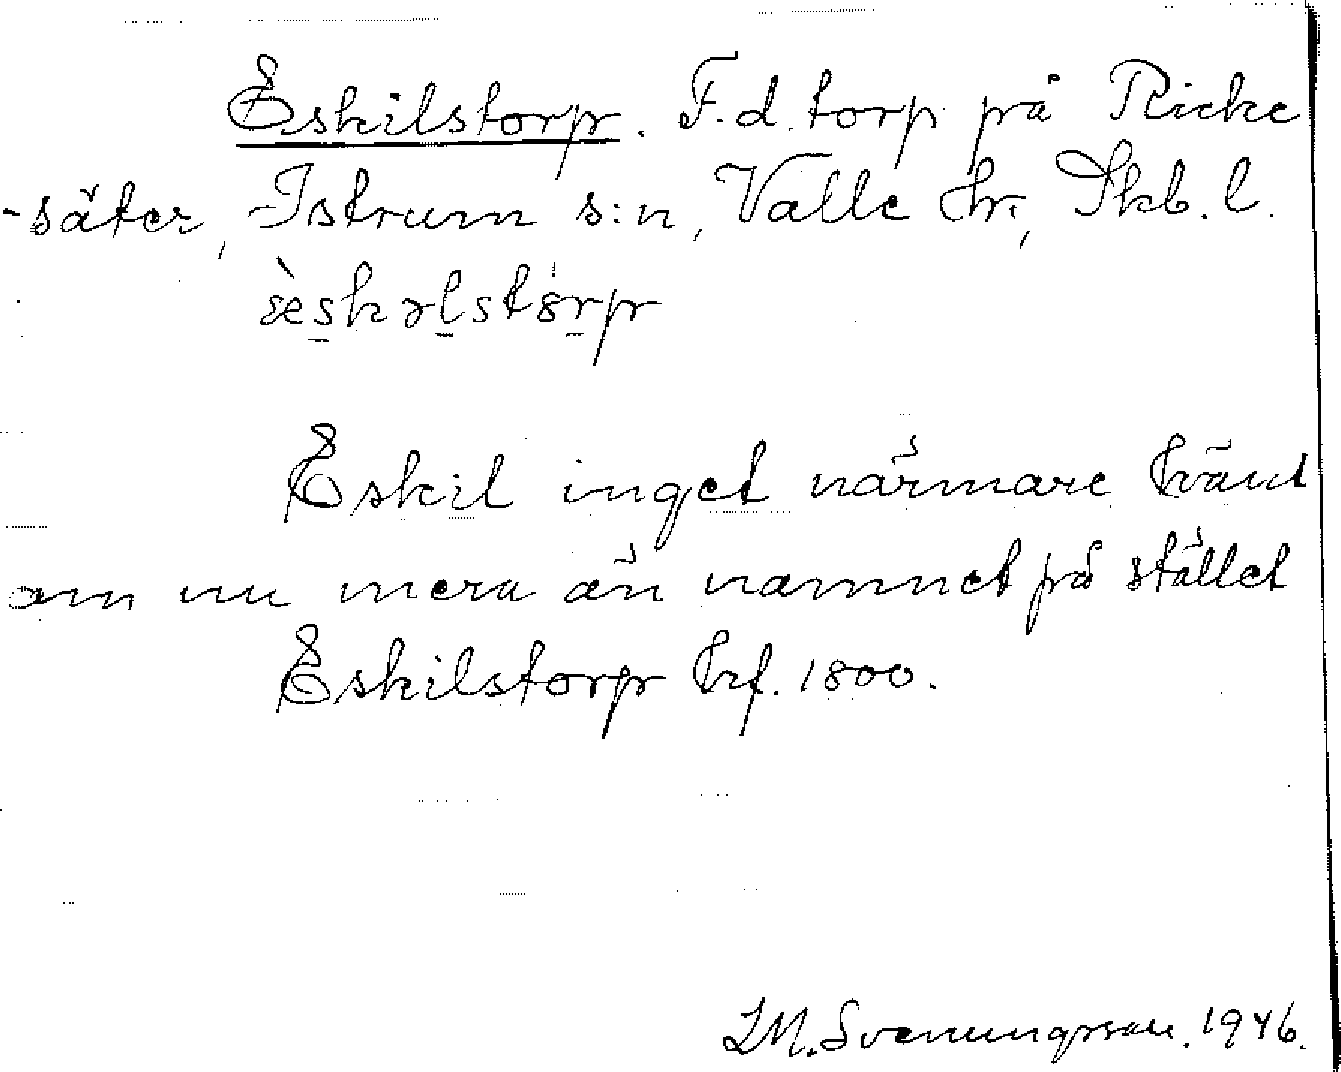 Eskilstorp. F.d. torp på Ricke
-säter, Istrum s:n, Valle hr, Skb. l.
Eskil inget närmare känt
om nu mera än namnet på stället
Eskilstorp kf. 1800.
Svenungsson. 1946.